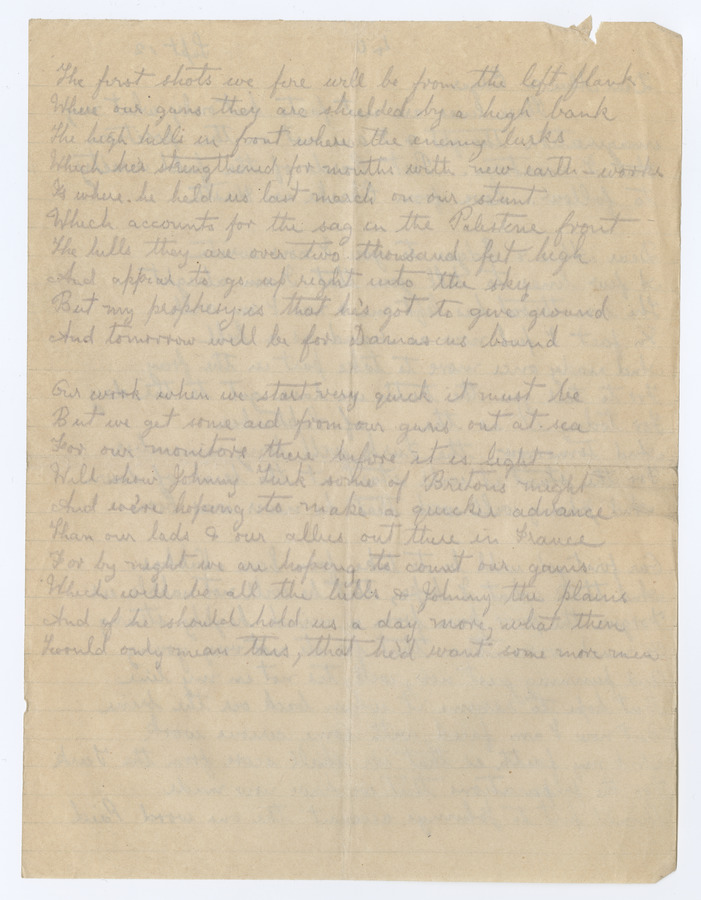 The first shots we fire will be from the left flank
Where our guns they are shielded by a high bank
The high hills in front where the enemy lurks
Which he's strengthened for months with new earth-works
Is where he held us last march on our stunt
Which accounts for the sag in the Palestine front
The hills they are over two thousand feet high
And appear to go up right into the sky
But my prophesy is that he's got to give ground
And tomorrow will be for Damascus bound
Our work when we start very quick it must be
But we get some aid from our guns out at sea
For our monitors there before it is light
Will show Johnny Turk some of Britons might
And we're hoping to make a quicker advance
Than our lads & our allies out there in France
For by night we are hoping to count our gains
Which will be all the hills & Johnny the plains
And if he should hold us a day more, what then
'twould only mean this, that he'd want some more men